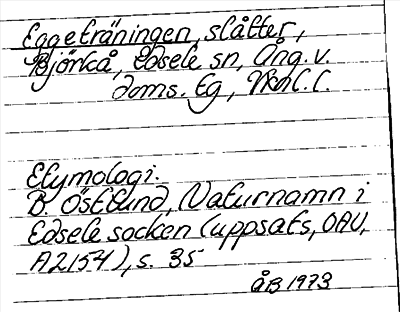 Eggeträningen, slåtter,
Björkå, Edsele sn, Ång. v.
doms. Eg, Vknl. l.
Etymologi.
B. Östlund, Naturnamn i
Edsele socken (uppsats, OAU,
A2154), s. 35
ÅB 1973